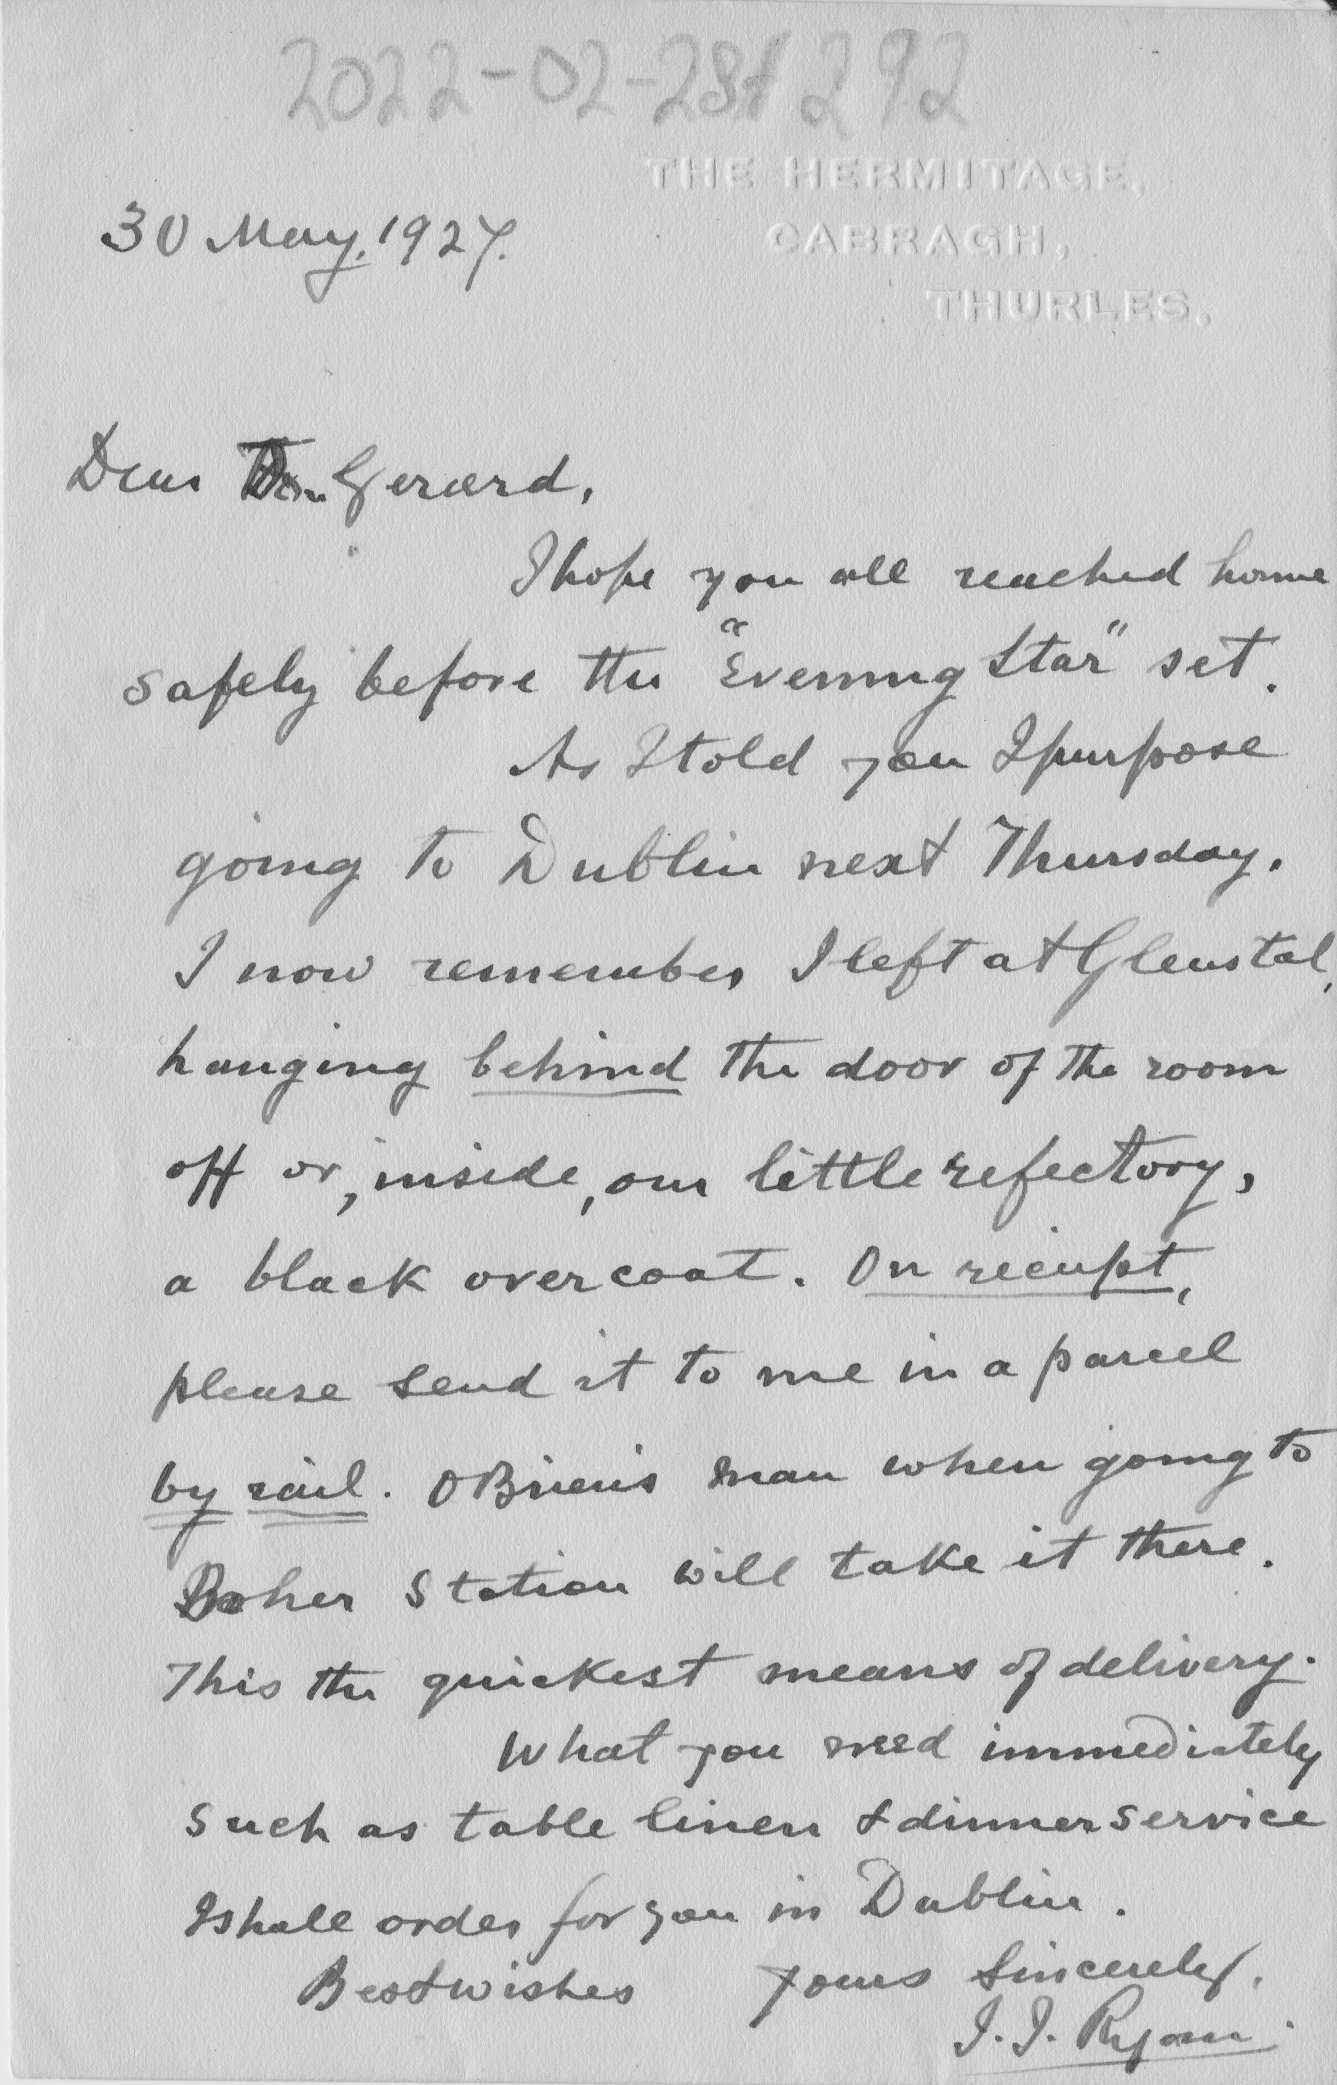 2022-02-28 292
THE HERMITAGE,
CABRAGH,
THURLES.
30 May, 1927.
Dear Gerard,
I hope you all reached home
safely before the "Evening Star" set.
As I told you I purpose
going to Dublin next Thursday.
I now remember I left at Glenstal,
hanging behind the door of the room
off or, inside, our little refectory,
a black overcoat. On reciept,
please send it to me in a parcel
by rail. O'Brien's man when going to
Boher Station will take it there.
This the quickest means of delivery.
What you need immediately
such as table linen & dinner service
I shall order for you in Dublin.
Best wishes yours sincerely,
J. J. Ryan.